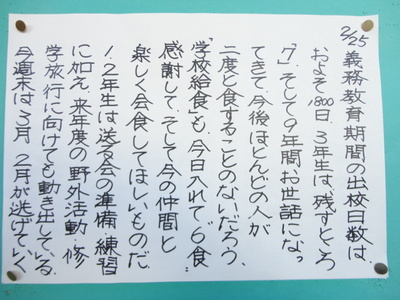 2/25
義務教育期間の出校日数は、
およそ1800日。3年生は、残すところ
“7”。そして9年間お世話になっ
てきて、今後ほとんどの人が
二度と食することのないだろう、
“学校給食”も、今日入れて“6食”
感謝して、そして今の仲間と
楽しく会食してほしいものだ
1、2年生は送る会の準備・練習
に加え、来年度の野外活動・修
学旅行に向けても動き出している。
今週末は3月 2月が逃げていく